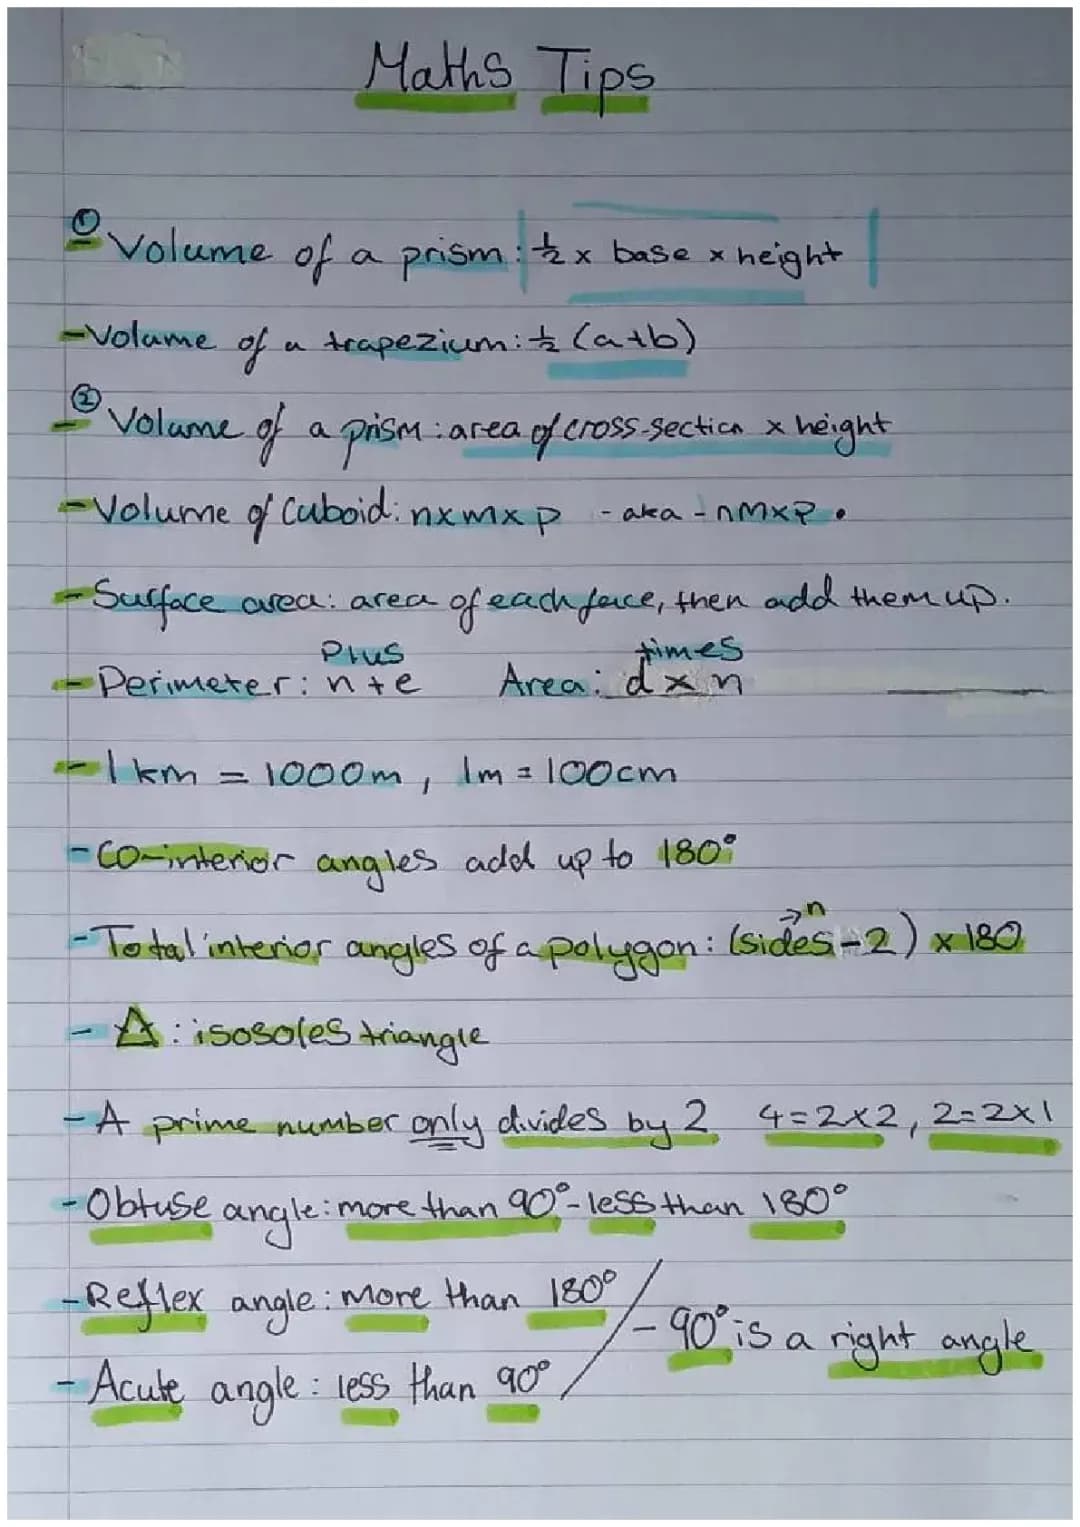 Maths Tips
① Volume of a prism: ½ x base x height
- Volume of a trapezium: ½ (a+b)
② - Volume of a prism: area of cross-section x height
- Volume of Cuboid: nxmxp - aka - nmxp.
- Surface area: area of each face, then add them up.
Plus times
- Perimeter: n+e Area: d x n
- 1 km = 1000m, 1m = 100cm
- Co-interior angles add up to 180°
- Total interior angles of a polygon: (sides → n - 2) x 180
- △: isosoles triangle
- A prime number only divides by 2 4=2x2, 2=2x1
- Obtuse angle: more than 90° - less than 180°
- Reflex angle: more than 180°
- 90° is a right angle
- Acute angle: less than 90°